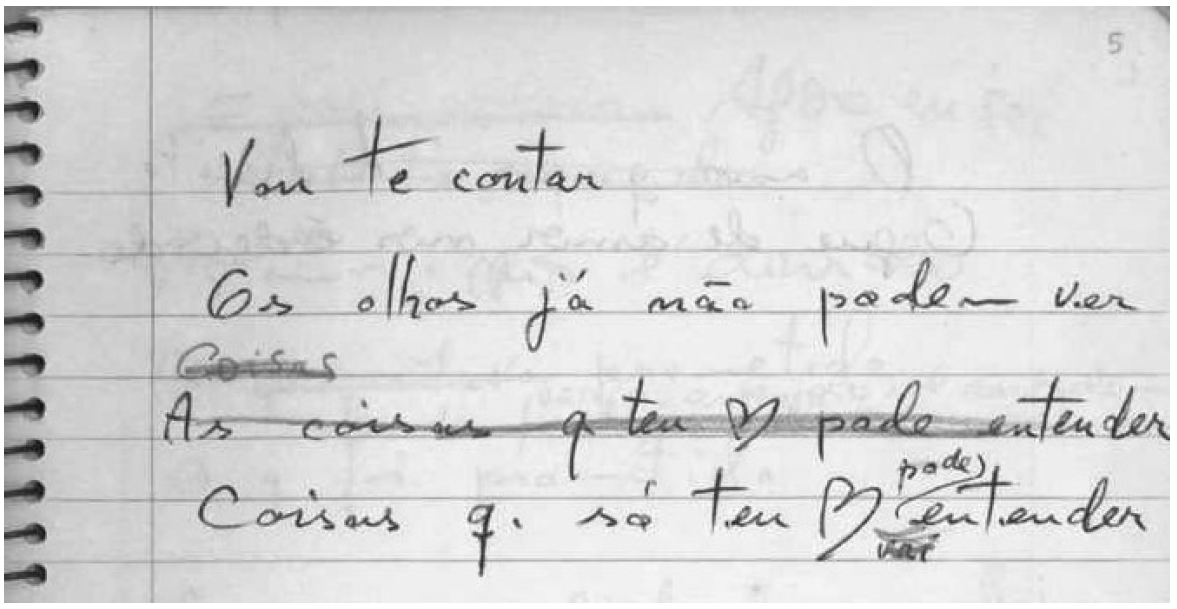 5
Vou te contar
Os olhos já não podem ver
Coisas
As coisas q teu ♡ pode entender
pode
Coisas q. só teu ♡ entender
vai